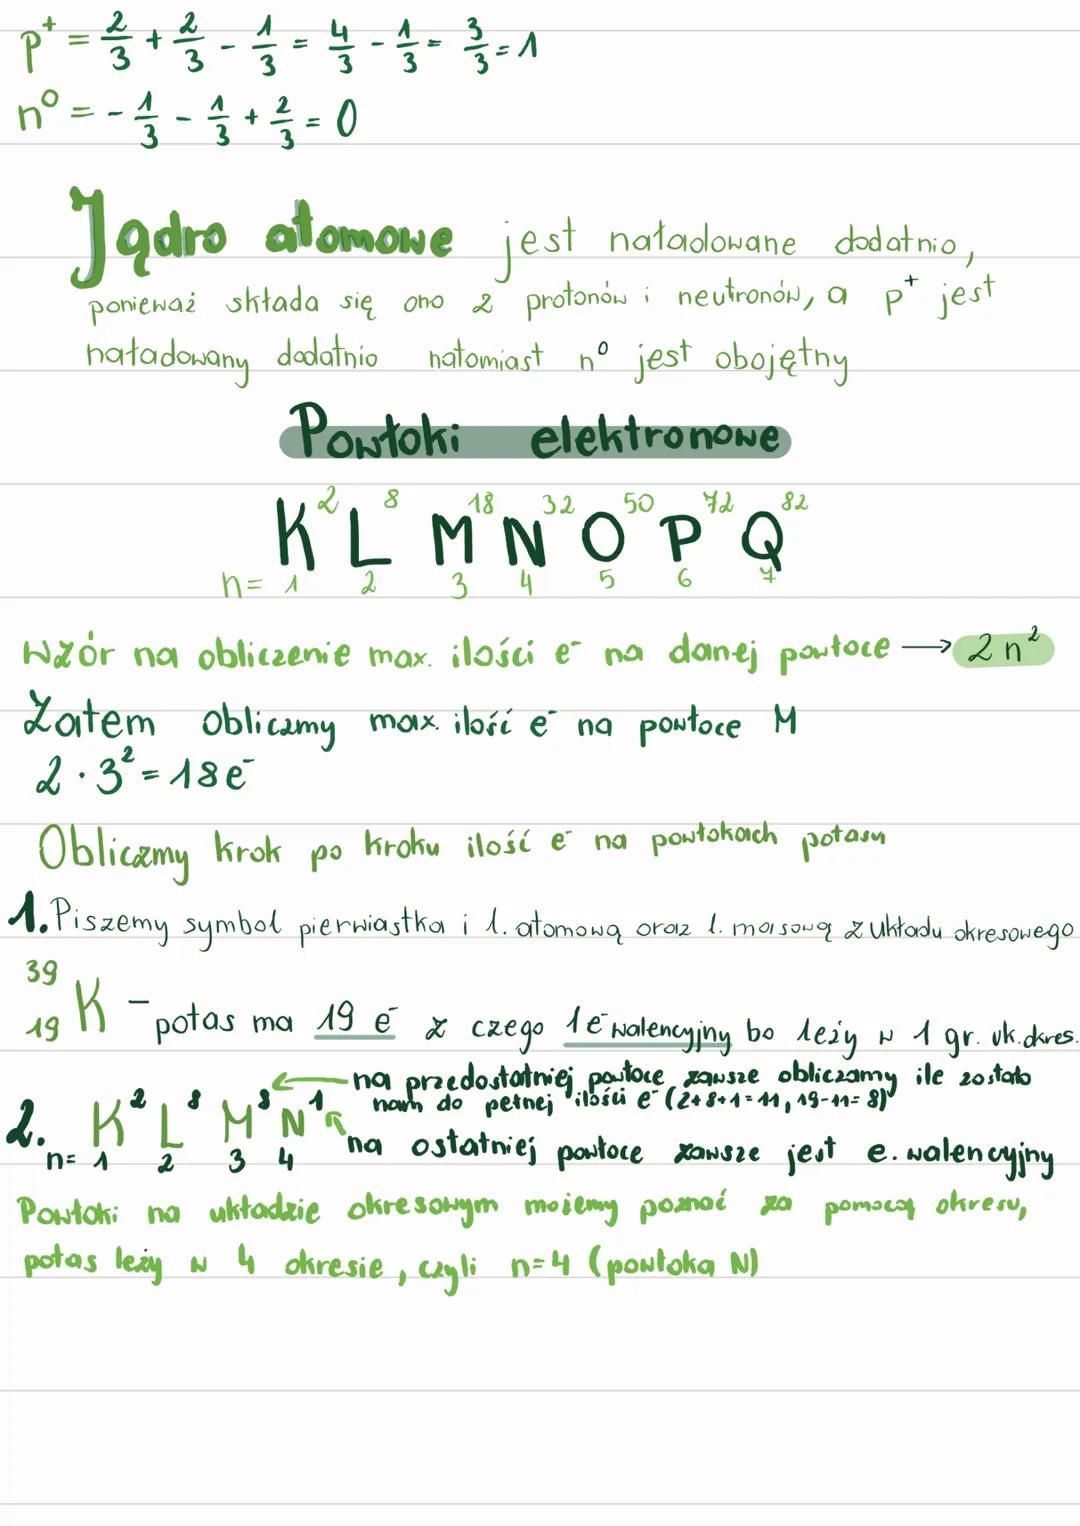 p⁺ = 2/3 + 2/3 - 1/3 = 4/3 - 1/3 = 3/3 = 1
n⁰ = - 1/3 - 1/3 + 2/3 = 0
Jądro atomowe jest naładowane dodatnio,
ponieważ składa się ono z protonów i neutronów, a p⁺ jest
naładowany dodatnio natomiast n⁰ jest obojętny
Powłoki elektronowe
K² L⁸ M¹⁸ N³² O⁵⁰ P⁷² Q⁸²
n= 1 2 3 4 5 6 7
Wzór na obliczenie max. ilości e⁻ na danej powłoce → 2n²
Zatem obliczmy max. ilość e⁻ na powłoce M
2 · 3² = 18e⁻
Obliczmy krok po kroku ilość e⁻ na powłokach potasu
1. Piszemy symbol pierwiastka i l. atomową oraz l. masową z układu okresowego
39
19 K - potas ma 19 e⁻ z czego 1e⁻ walencyjny bo leży w 1 gr. uk.okres.
na przedostatniej powłoce zawsze obliczamy ile zostało
nam do pełnej ilości e⁻ (2+8+1=11, 19-11=8)
2. K² L⁸ M⁸ N¹
na ostatniej powłoce zawsze jest e. walencyjny
n= 1 2 3 4
Powłoki na układzie okresowym możemy poznać za pomocą okresu,
potas leży w 4 okresie, czyli n=4 (powłoka N)